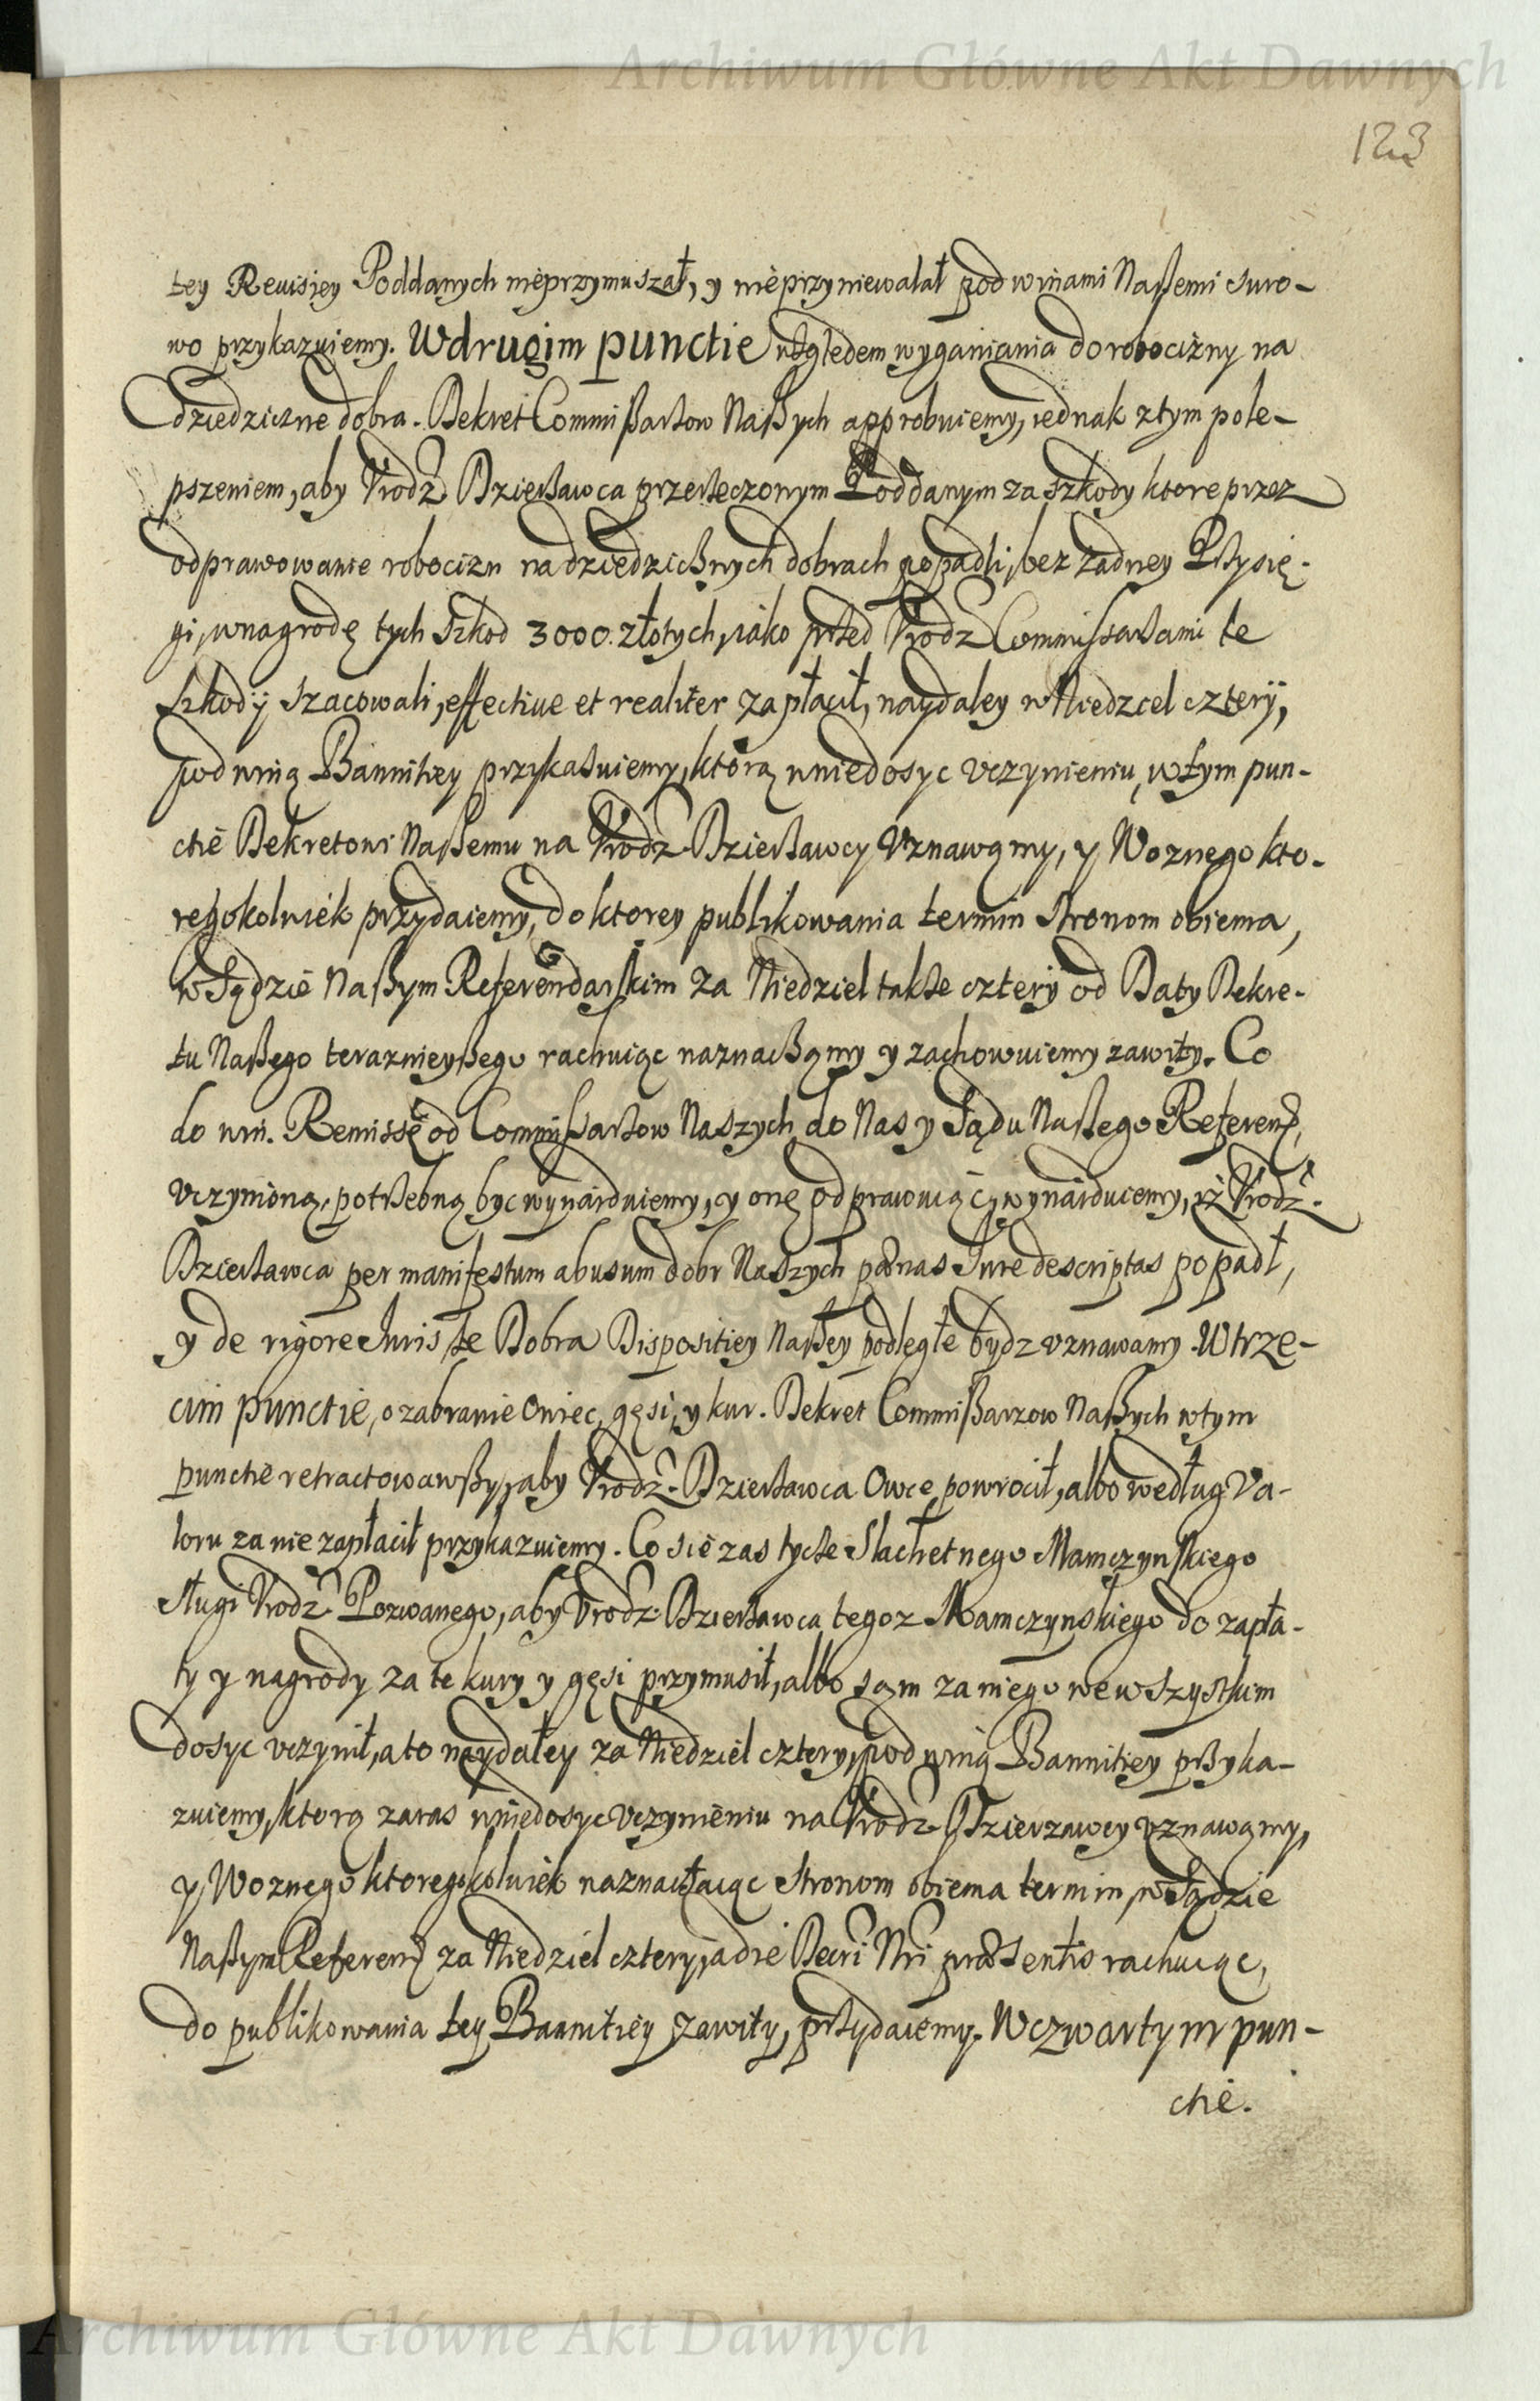 Archiwum Główne Akt Dawnych
123
tey Reuisiey Poddanych nieprzymuszał, y nieprzyniewalał pod winami Naßemi suro-
wo przykazuiemy. Wdrugim punctie względem wyganiania do robocizny na
dziedziczne dobra. Dekret Commißarzow Naßych approbuiemy, iednak z tym pole-
pszeniem, aby Vrodz. Dzierżawca przerzeczonym Poddanym za szkody ktore przez
odprawowanie robocizn na dziedzicznych dobrach popadli, bez żadney Przysię-
gi, wnagrodę tych szkod 3000. złotych, iako przed Vrodz Commissarzami te
szkody szacowali, effectiue et realiter zapłacił, naydaley w Niedziel cztery,
pod winą Bannitiey przykazuiemy, ktorą wniedosyc vczynieniu, w tym pun-
ctie Dekretowi Naßemu na Vrodz. Dzierżawcy Vznawamy, y Woznego kto-
regokolwiek przydaiemy, do ktorey publikowania termin stronom obiema,
w Sądzie Naßym Referendarskim za Niedziel także cztery od Daty Dekre-
tu Naßego teraznieyßego rachuiąc naznaczamy y zachowuiemy zawity. Co
do win. Remissę od Commißarzow Naszych do Nas y Sądu Naßego Referend,
vczynioną, potrzebną byc wynaiduiemy, y onę odprawuiąc, wynaiduiemy, iż Vrodz.
Dzierżawca per manifestum abusum dobr Naszych pænas Jure descriptas popadł,
y de rigore Iuris te Dobra Dispositiey Naßey podległe bydz vznawamy. W trze-
cim punctie, o zabranie Owiec, gęsi, y kur. Dekret Commißarzow Naßych w tym
punctie retractowawßy, aby Vrodz. Dzierżawca Owce powrocił, albo według Va-
loru za nie zapłacił przykazuiemy. Co sie zas tycze Slachetnego Mamczynskiego
sługi Vrodz. Pozwanego, aby Vrodz. Dzierżawca tegoz Mamczynskiego do zapła-
ty y nagrody za te kury y gęsi przymusił, albo sam za niego we wszystkim
dosyc vczynił, a to naydaley za Niedziel cztery, pod winą Bannitiey przyka-
zuiemy, ktorą zaras wniedosyc vczynieniu na Vrodz. Dzierzawcy vznawamy,
y Woznego ktoregokolwiek naznaczaiąc stronom obiema termin, w Sądzie
Naßym Referend za Niedziel cztery, a die Decri Nri præsentis rachuiąc,
do publikowania tey Bannitiey zawity, przydaiemy. W czwartym pun-
ctie.
Archiwum Główne Akt Dawnych